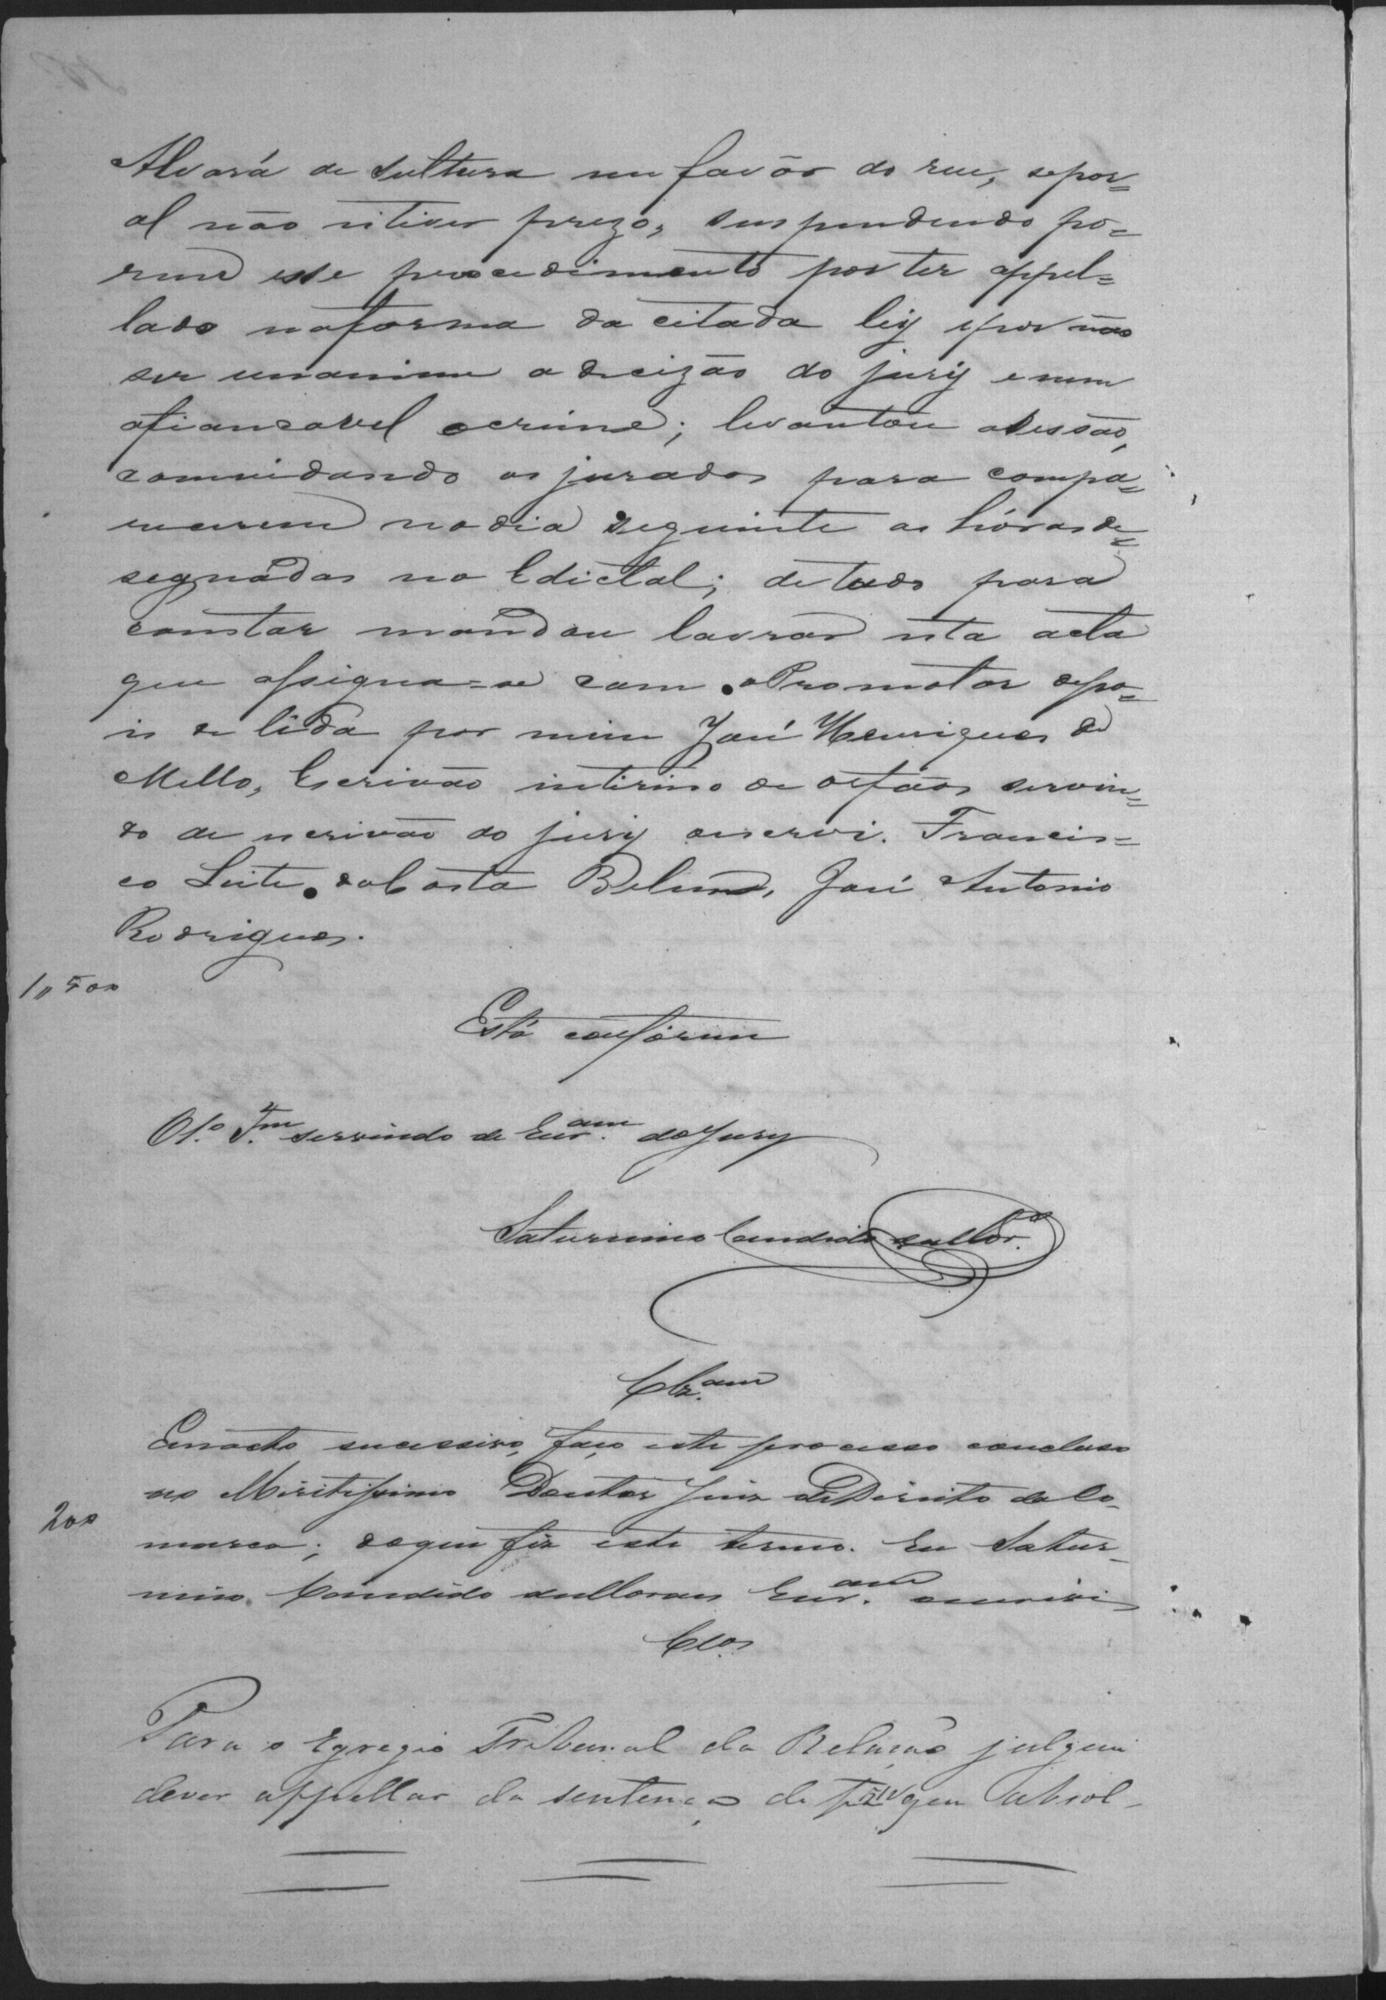 Alvará de sultura em favôr do reu, sepor=
al não estiver prezo, suspendendo po=
rem esse procedimento por ter appel=
lado naforma da citada ley epor não
ser unanime a decizão do jury e nem
afiansavel ocrime; levantou aSessão,
comvidando os jurados para compa=
recerem nodia seguinte as hóras de=
segnádas no Edictal; detudo para
constar mandou lavrar esta acta
que assigna=se com oPromotor depo=
is de lida por mim José Henriques de
Mello, Escrivão interino de orfãos servin=
do de escrivão do jury oescrevi. Francis=
co Leite daCosta Belem, José Antonio
Rodrigues.
1,,500
Está confórme
O 1.º T.am servindo de Escr.am do Jury
Saturnino Candido
Clz.am
Emacto sucessivo, faço este processo concluso
ao Miritissimo Doutor Juiz deDireito da Co-
200
marca; doque fiz este termo. Eu Satur-
nino Candido Escr.am escrevi
Clos
Para o Egregio Tribunal da Relação julguei
dever appellar da sentença de que absol-